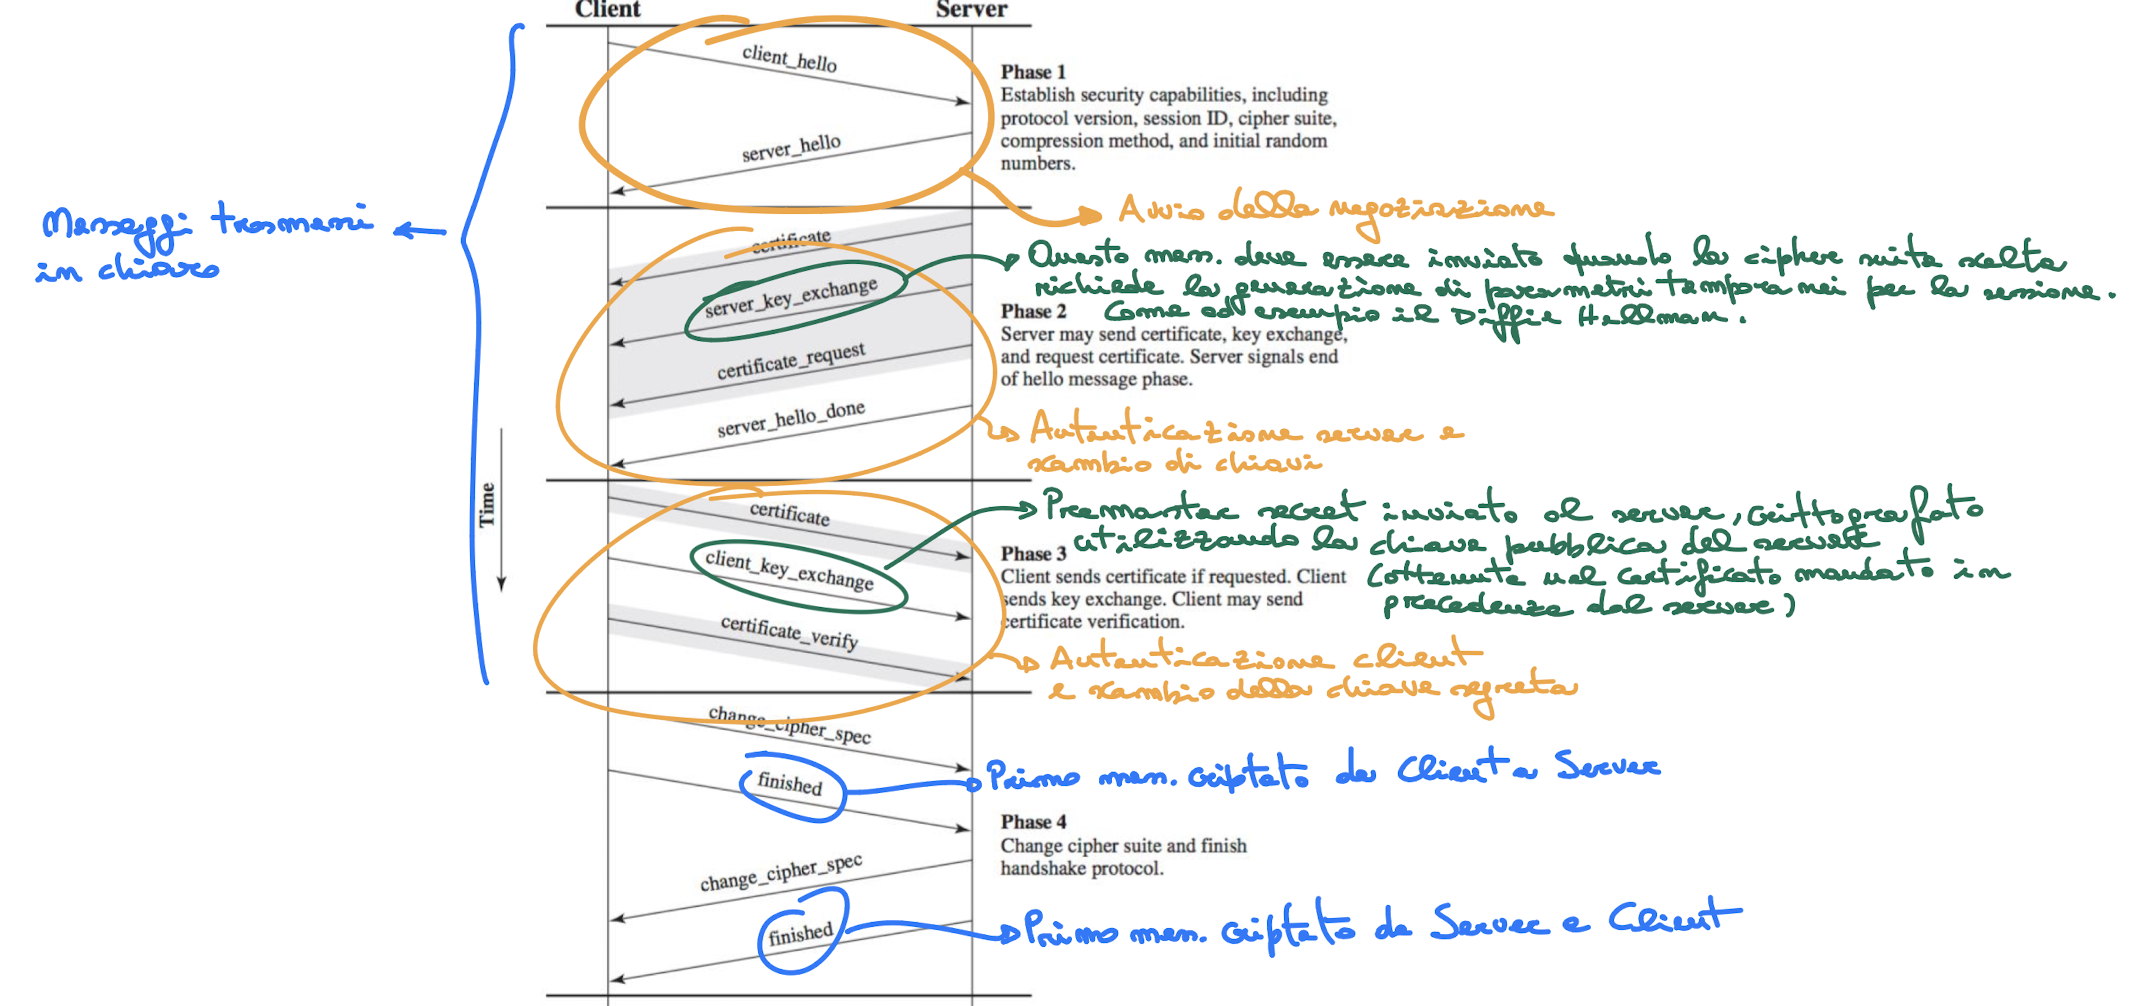 Client
Server
client_hello
Phase 1
Establish security capabilities, including
protocol version, session ID, cipher suite,
compression method, and initial random
numbers.
server_hello
Avvio della negoziazione
Messaggi trasmessi
in chiaro
certificate
Questo mess. deve essere inviato quando la cipher suite scelta
richiede la generazione di parametri temporanei per la sessione.
Come ad esempio il Diffie Hellman.
server_key_exchange
Phase 2
Server may send certificate, key exchange,
and request certificate. Server signals end
of hello message phase.
certificate_request
server_hello_done
Autenticazione server e
scambio di chiavi
Time
certificate
Premaster secret inviato al server, crittografato
utilizzando la chiave pubblica del server
(ottenuta nel certificato mandato in
precedenza dal server)
client_key_exchange
Phase 3
Client sends certificate if requested. Client
sends key exchange. Client may send
certificate verification.
certificate_verify
Autenticazione client
e scambio della chiave segreta
change_cipher_spec
finished
Primo mess. criptato da Client a Server
Phase 4
Change cipher suite and finish
handshake protocol.
change_cipher_spec
finished
Primo mess. criptato da Server a Client